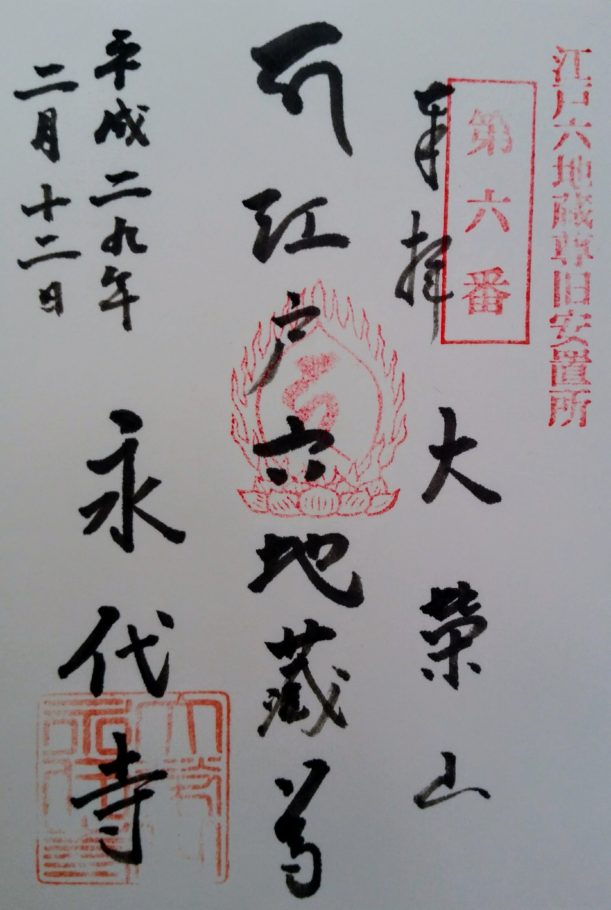 江戸六地蔵尊旧安置所
第六番
奉拝
大榮山
江戸六地蔵尊
永代寺
平成二九年
二月十二日